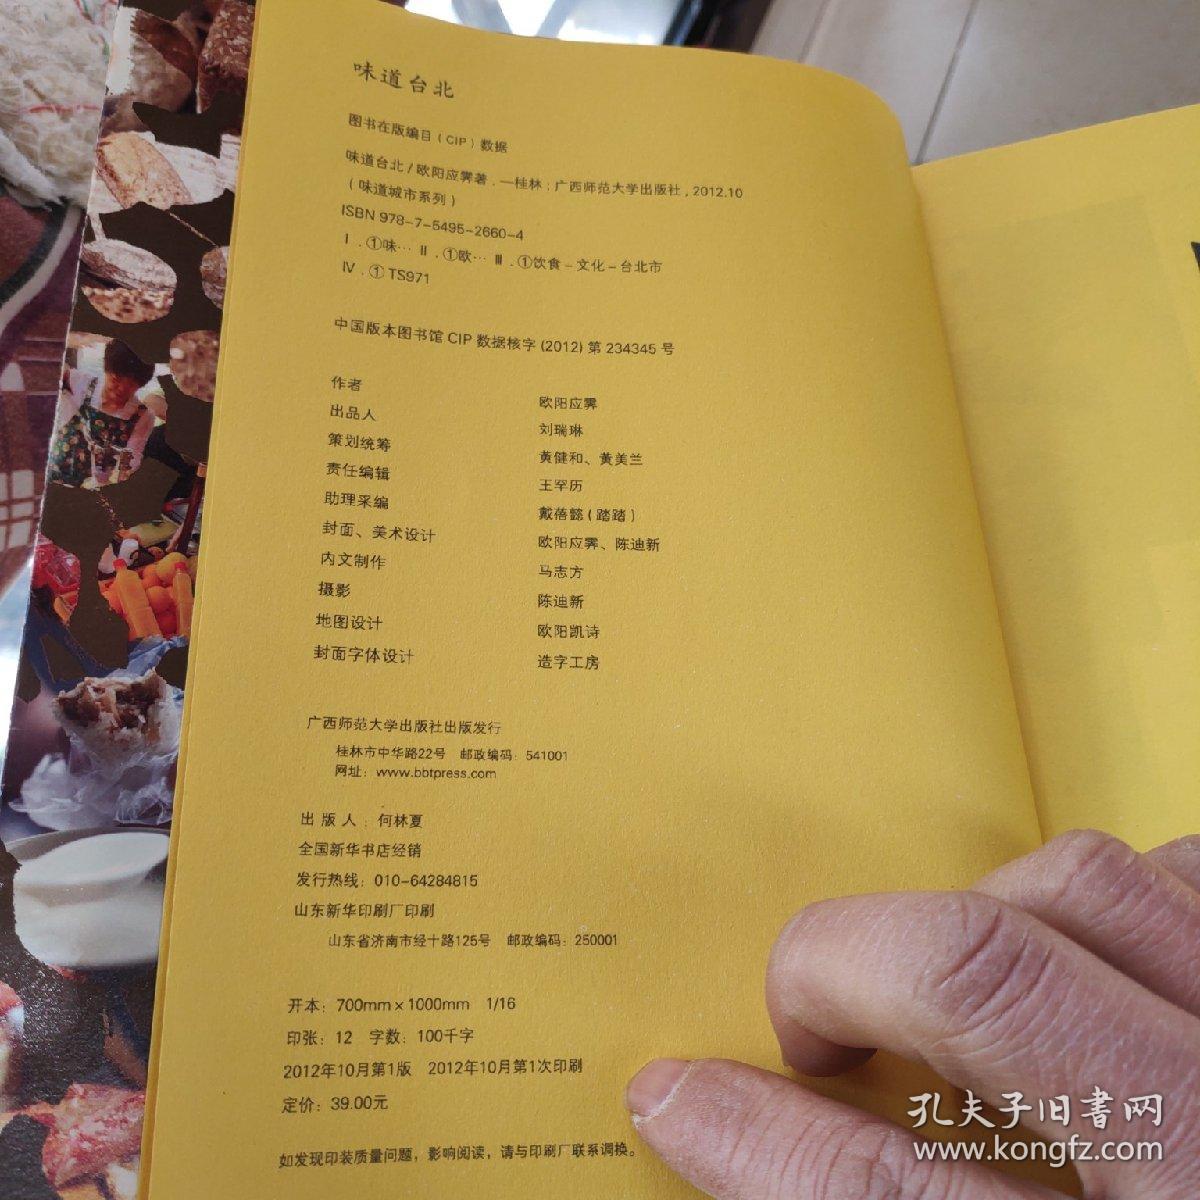 味道台北
图书在版编目(CIP)数据
味道台北/欧阳应霁著.—桂林:广西师范大学出版社,2012.10
(味道城市系列)
ISBN 978-7-5495-2660-4
Ⅰ.①味… Ⅱ.①欧… Ⅲ.①饮食-文化-台北市
Ⅳ.①TS971
中国版本图书馆CIP数据核字(2012)第234345号
作者 欧阳应霁
出品人 刘瑞琳
策划统筹 黄健和、黄美兰
责任编辑 王罕历
助理采编 戴蓓懿(踏踏)
封面、美术设计 欧阳应霁、陈迪新
内文制作 马志方
摄影 陈迪新
地图设计 欧阳凯诗
封面字体设计 造字工房
广西师范大学出版社出版发行
桂林市中华路22号 邮政编码:541001
网址:www.bbtpress.com
出版人:何林夏
全国新华书店经销
发行热线:010-64284815
山东新华印刷厂印刷
山东省济南市经十路125号 邮政编码:250001
开本:700mm×1000mm 1/16
印张:12 字数:100千字
2012年10月第1版 2012年10月第1次印刷
定价:39.00元
如发现印装质量问题,影响阅读,请与印刷厂联系调换。
孔夫子旧书网
www.kongfz.com